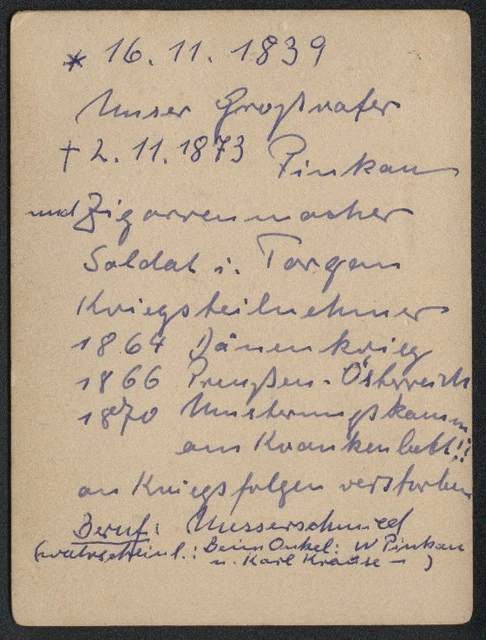 * 16. 11. 1839
Unser Großvater
† 2. 11. 1873 Pinkau
und Zigarrenmacher
Soldat i. Torgau
Kriegsteilnehmer
1864 Dänenkrieg
1866 Preußen - Österreich
1870 Musterungskomm
am Krankenbett!!
an Kriegsfolgen verstorben
Beruf: Messerschmied
(wahrscheinl.: Beim Onkel: W Pinkau
u. Karl Krause - )